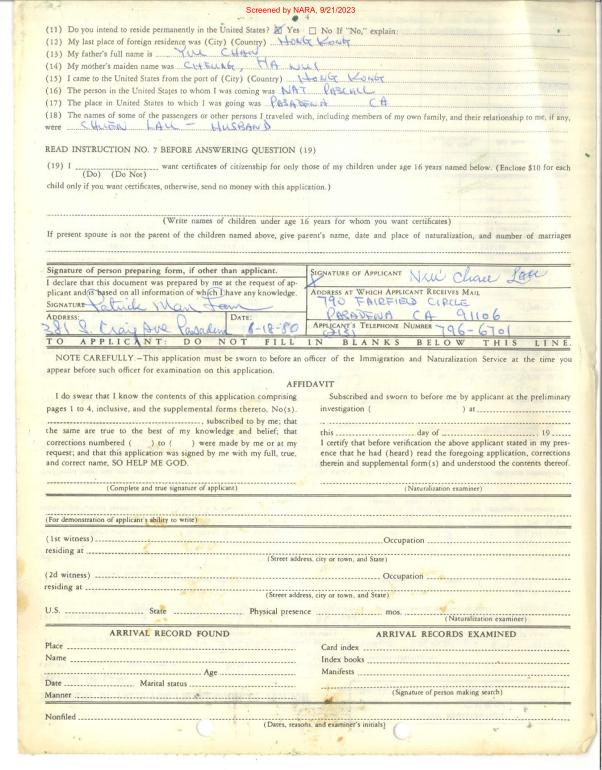 Screened by NARA, 9/21/2023
4
(11) Do you intend to reside permanently in the United States? ☒ Yes ☐ No If "No," explain:
(12) My last place of foreign residence was (City) (Country) HONG KONG
(13) My father's full name is YUI CHAN
(14) My mother's maiden name was CHEUNG, HA NUI
(15) I came to the United States from the port of (City) (Country) HONG KONG
(16) The person in the United States to whom I was coming was NAT PASCALL
(17) The place in United States to which I was going was PASADENA CA
(18) The names of some of the passengers or other persons I traveled with, including members of my own family, and their relationship to me, if any,
were CHUEN LAU - HUSBAND
READ INSTRUCTION NO. 7 BEFORE ANSWERING QUESTION (19)
(19) I want certificates of citizenship for only those of my children under age 16 years named below. (Enclose $10 for each
(Do) (Do Not)
child only if you want certificates, otherwise, send no money with this application.)
(Write names of children under age 16 years for whom you want certificates)
If present spouse is not the parent of the children named above, give parent's name, date and place of naturalization, and number of marriages
Signature of person preparing form, if other than applicant.
I declare that this document was prepared by me at the request of ap-
plicant and is based on all information of which I have any knowledge.
SIGNATURE Patrick Man
ADDRESS: DATE:
281 S. Craig Ave Pasadena 6-18-80
SIGNATURE OF APPLICANT Nui Chan Lau
ADDRESS AT WHICH APPLICANT RECEIVES MAIL
790 FAIRFIELD CIRCLE
PASADENA CA 91106
APPLICANT'S TELEPHONE NUMBER 796-6701
(213)
TO APPLICANT: DO NOT FILL IN BLANKS BELOW THIS LINE.
NOTE CAREFULLY.—This application must be sworn to before an officer of the Immigration and Naturalization Service at the time you
appear before such officer for examination on this application.
AFFIDAVIT
I do swear that I know the contents of this application comprising
pages 1 to 4, inclusive, and the supplemental forms thereto, No(s).
, subscribed to by me; that
the same are true to the best of my knowledge and belief; that
corrections numbered ( ) to ( ) were made by me or at my
request; and that this application was signed by me with my full, true,
and correct name, SO HELP ME GOD.
(Complete and true signature of applicant)
Subscribed and sworn to before me by applicant at the preliminary
investigation ( ) at
this day of , 19
I certify that before verification the above applicant stated in my pres-
ence that he had (heard) read the foregoing application, corrections
therein and supplemental form(s) and understood the contents thereof.
(Naturalization examiner)
(For demonstration of applicant's ability to write)
(1st witness) Occupation
residing at
(Street address, city or town, and State)
(2d witness) Occupation
residing at
(Street address, city or town, and State)
U.S. State Physical presence mos.
(Naturalization examiner)
ARRIVAL RECORD FOUND
Place
Name
Age
Date Marital status
Manner
ARRIVAL RECORDS EXAMINED
Card index
Index books
Manifests
(Signature of person making search)
Nonfiled
(Dates, reasons, and examiner's initials)